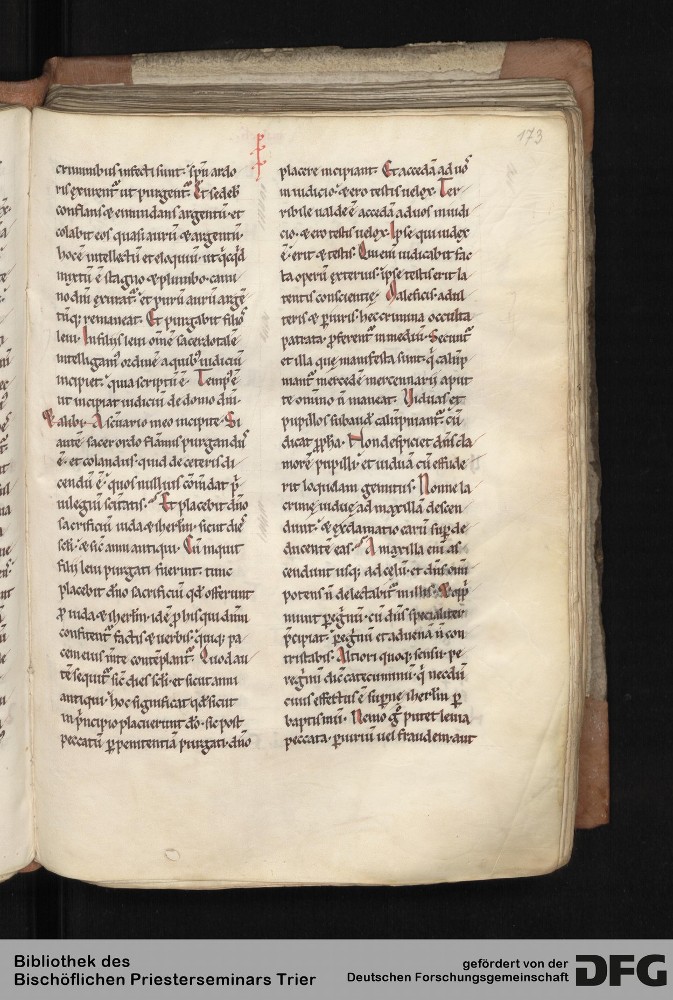 173
criminibus infecti sunt. sp̄u ardo
ris exurent᷑ ut purgent᷑. Et sedeb̄
conflans & emundans argentū. et
colabit eos quasi aurū & argentū.
hoc ē intellectū et eloquiū. ut qͥcqͥd
mixtū ē stagno & plumbo. cami
no dn̄i exurat᷑. et purū aurū argē
tūq; remaneat. Et purgabit filios
leui. In filiis leui om̄em sacerdotalē
intelligamꝰ ordinē a quibꝰ iudiciū
incipiet. quia scriptū ē. Tempꝰ ē
ut incipiat iudiciū de domo dn̄i.
& alibi. A sc̄uario meo incipite. Si
autē sacer ordo flāmis purgandus
ē. et colandus. quid de ceteris di
cendū ē. quos nullius cōm̄dat pͥ
uilegiū sc̄itatis. Et placebit dn̄o
sacrificiū iuda & ih̄erlm̄. sicut dies
sc̄li. & sic anni antiqui. Cū inquit
filii leui purgati fuerint. tunc
placebit dn̄o sacrificiū qd̄ offerunt
ꝓ iuda & ih̄erlm̄. id ē ꝓ his qui dn̄m
confitent᷑ factis & uerbis. quiq; pa
cem eius m̄te contēplant᷑. Quod au
tē sequit᷑ sic dies sc̄li. et sicut anni
antiqui. hoc significat qd̄ sicut
in pͥncipio placuerunt dō. sic post
peccatū ꝑ penitentiā purgati. dn̄o
placere incipiant. Et accedā ad uos
in iudicio. & ero testis uelox. Ter
ribile ualde ē. accedā ad uos in iudi
cio. & ero testis uelox. Ipse qui iudex
ē. erit & testis. Qui eni iudicabit fac
ta operū exterius. ipse testis erit la
tentis conscientie. Maleficis. adul
teris & ꝑiuris. hec crimina occulta
patrata. ꝓferent᷑ in mediū. Secunt᷑
et illa que manifesta sunt. qͥ calūp
niant᷑ mercedē mercennarii. aput
te om̄ino n̄ maneat. Viduas et
pupillos subaud᷑ calūpniant᷑. cū
dicat ꝓph̄a. Non despiciet dn̄s cla
morē pupilli. et uiduā cū effude
rit loquelam gemitus. Nonne la
crime uidue ad maxillā descen
dunt. & exclamatio earū suꝑ de
ducentē eas. A maxilla eni as
cendunt usq; ad celū. et dn̄s om̄i
potens n̄ delectabit᷑ in illis. & oppͥ
munt peregͥnū. cū dn̄s specialiter
pͥcipiat. peregͥnū et aduenā n̄ con
tristabis. Altiori quoq; sensu. pe
regͥnū dic̄ catecuminū. qͥ necdū
ciuis effectus ē superne ih̄erlm̄ ꝑ
baptismū. Nemo gͦ putet leuia
peccata. ꝑiuriū uel fraudem. aut
Bibliothek des
Bischöflichen Priesterseminars Trier
gefördert von der
Deutschen Forschungsgemeinschaft
DFG